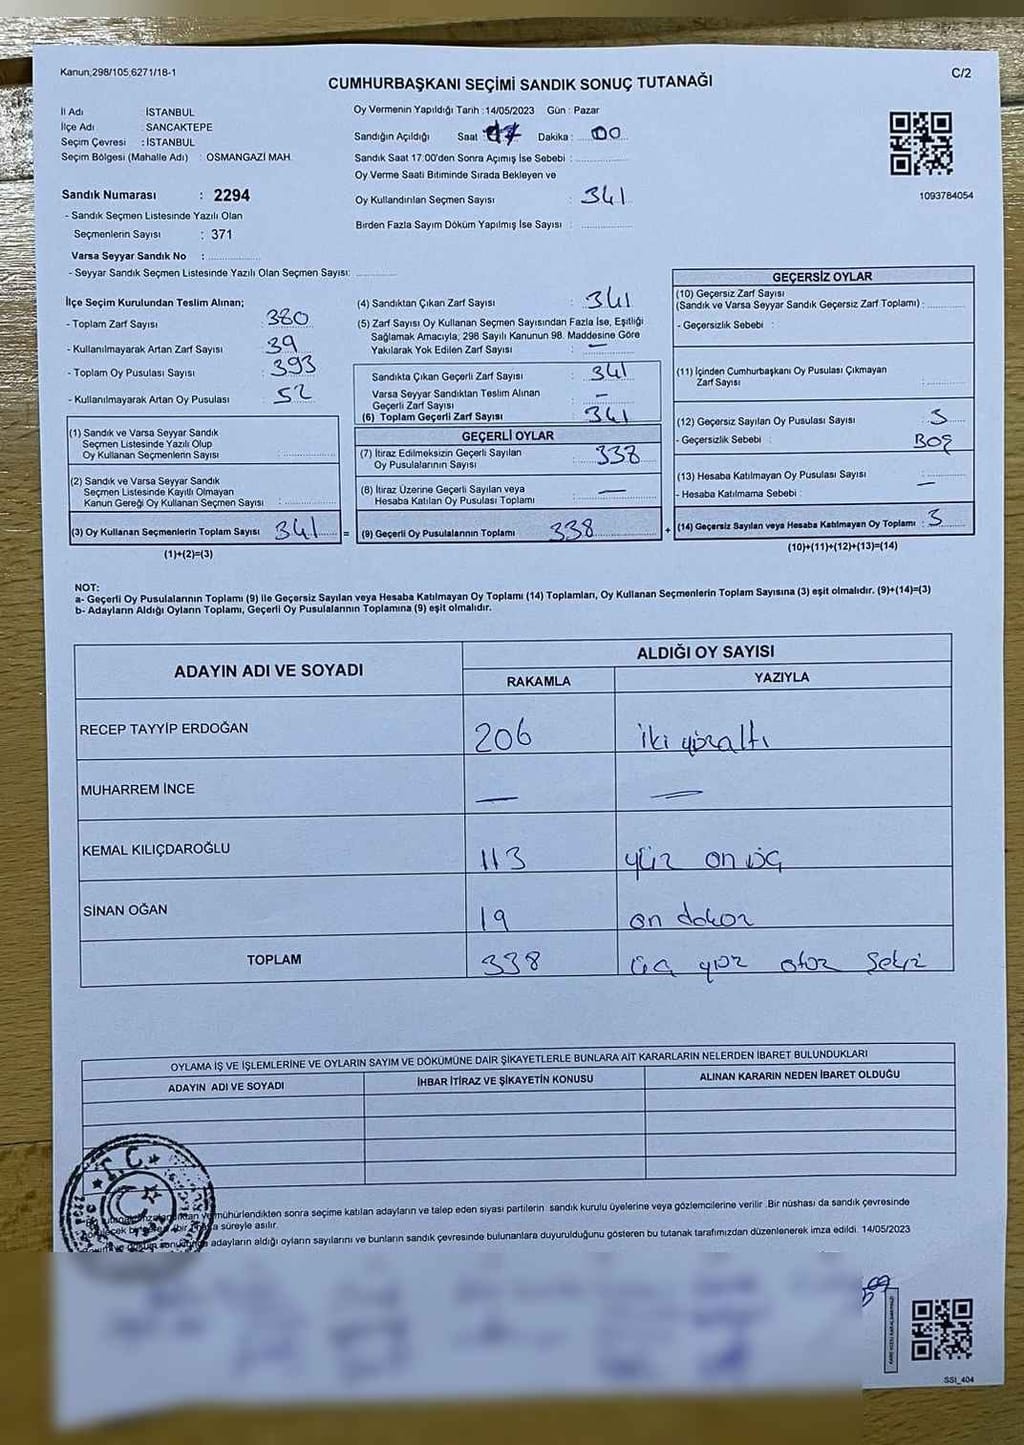 Kanun;298/105,6271/18-1
C/2
CUMHURBAŞKANI SEÇİMİ SANDIK SONUÇ TUTANAĞI
İl Adı İSTANBUL
İlçe Adı SANCAKTEPE
Seçim Çevresi : İSTANBUL
Seçim Bölgesi (Mahalle Adı) : OSMANGAZİ MAH.
Sandık Numarası : 2294
- Sandık Seçmen Listesinde Yazılı Olan
Seçmenlerin Sayısı : 371
Varsa Seyyar Sandık No :
- Seyyar Sandık Seçmen Listesinde Yazılı Olan Seçmen Sayısı:
Oy Vermenin Yapıldığı Tarih : 14/05/2023 Gün : Pazar
Sandığın Açıldığı Saat : 17 Dakika : 00
Sandık Saat 17:00'den Sonra Açımış İse Sebebi :
Oy Verme Saati Bitiminde Sırada Bekleyen ve
Oy Kullandırılan Seçmen Sayısı : 341
Birden Fazla Sayım Döküm Yapılmış İse Sayısı :
1093784054
İlçe Seçim Kurulundan Teslim Alınan;
- Toplam Zarf Sayısı : 380
- Kullanılmayarak Artan Zarf Sayısı : 39
- Toplam Oy Pusulası Sayısı : 393
- Kullanılmayarak Artan Oy Pusulası : 52
(1) Sandık ve Varsa Seyyar Sandık
Seçmen Listesinde Yazılı Olup
Oy Kullanan Seçmenlerin Sayısı :
(2) Sandık ve Varsa Seyyar Sandık
Seçmen Listesinde Kayıtlı Olmayan
Kanun Gereği Oy Kullanan Seçmen Sayısı :
(3) Oy Kullanan Seçmenlerin Toplam Sayısı : 341 =
(1)+(2)=(3)
(4) Sandıktan Çıkan Zarf Sayısı : 341
(5) Zarf Sayısı Oy Kullanan Seçmen Sayısından Fazla İse, Eşitliği
Sağlamak Amacıyla; 298 Sayılı Kanunun 98. Maddesine Göre
Yakılarak Yok Edilen Zarf Sayısı : —
Sandıkta Çıkan Geçerli Zarf Sayısı : 341
Varsa Seyyar Sandıktan Teslim Alınan
Geçerli Zarf Sayısı : —
(6) Toplam Geçerli Zarf Sayısı : 341
GEÇERLİ OYLAR
(7) İtiraz Edilmeksizin Geçerli Sayılan
Oy Pusulalarının Sayısı : 338
(8) İtiraz Üzerine Geçerli Sayılan veya
Hesaba Katılan Oy Pusulası Toplamı : —
(9) Geçerli Oy Pusulalarının Toplamı : 338 +
GEÇERSİZ OYLAR
(10) Geçersiz Zarf Sayısı
(Sandık ve Varsa Seyyar Sandık Geçersiz Zarf Toplamı) :
- Geçersizlik Sebebi :
(11) İçinden Cumhurbaşkanı Oy Pusulası Çıkmayan
Zarf Sayısı :
(12) Geçersiz Sayılan Oy Pusulası Sayısı : 3
- Geçersizlik Sebebi : Boş
(13) Hesaba Katılmayan Oy Pusulası Sayısı : —
- Hesaba Katılmama Sebebi :
(14) Geçersiz Sayılan veya Hesaba Katılmayan Oy Toplamı : 3
(10)+(11)+(12)+(13)=(14)
NOT:
a- Geçerli Oy Pusulalarının Toplamı (9) ile Geçersiz Sayılan veya Hesaba Katılmayan Oy Toplamı (14) Toplamları, Oy Kullanan Seçmenlerin Toplam Sayısına (3) eşit olmalıdır. (9)+(14)=(3)
b- Adayların Aldığı Oyların Toplamı, Geçerli Oy Pusulalarının Toplamına (9) eşit olmalıdır.
ADAYIN ADI VE SOYADI ALDIĞI OY SAYISI
RAKAMLA YAZIYLA
RECEP TAYYİP ERDOĞAN 206 iki yüzaltı
MUHARREM İNCE — —
KEMAL KILIÇDAROĞLU 113 yüz on üç
SİNAN OĞAN 19 on dokuz
TOPLAM 338 üç yüz otuz sekiz
OYLAMA İŞ VE İŞLEMLERİNE VE OYLARIN SAYIM VE DÖKÜMÜNE DAİR ŞİKAYETLERLE BUNLARA AİT KARARLARIN NELERDEN İBARET BULUNDUKLARI
ADAYIN ADI VE SOYADI İHBAR İTİRAZ VE ŞİKAYETİN KONUSU ALINAN KARARIN NEDEN İBARET OLDUĞU
T.C.
mühürlendikten sonra seçime katılan adayların ve talep eden siyasi partilerin sandık kurulu üyelerine veya gözlemcilerine verilir. Bir nüshası da sandık çevresinde
süreyle asılır.
adayların aldığı oyların sayılarını ve bunların sandık çevresinde bulunanlara duyurulduğunu gösteren bu tutanak tarafımızdan düzenlenerek imza edildi. 14/05/2023
SSI_404